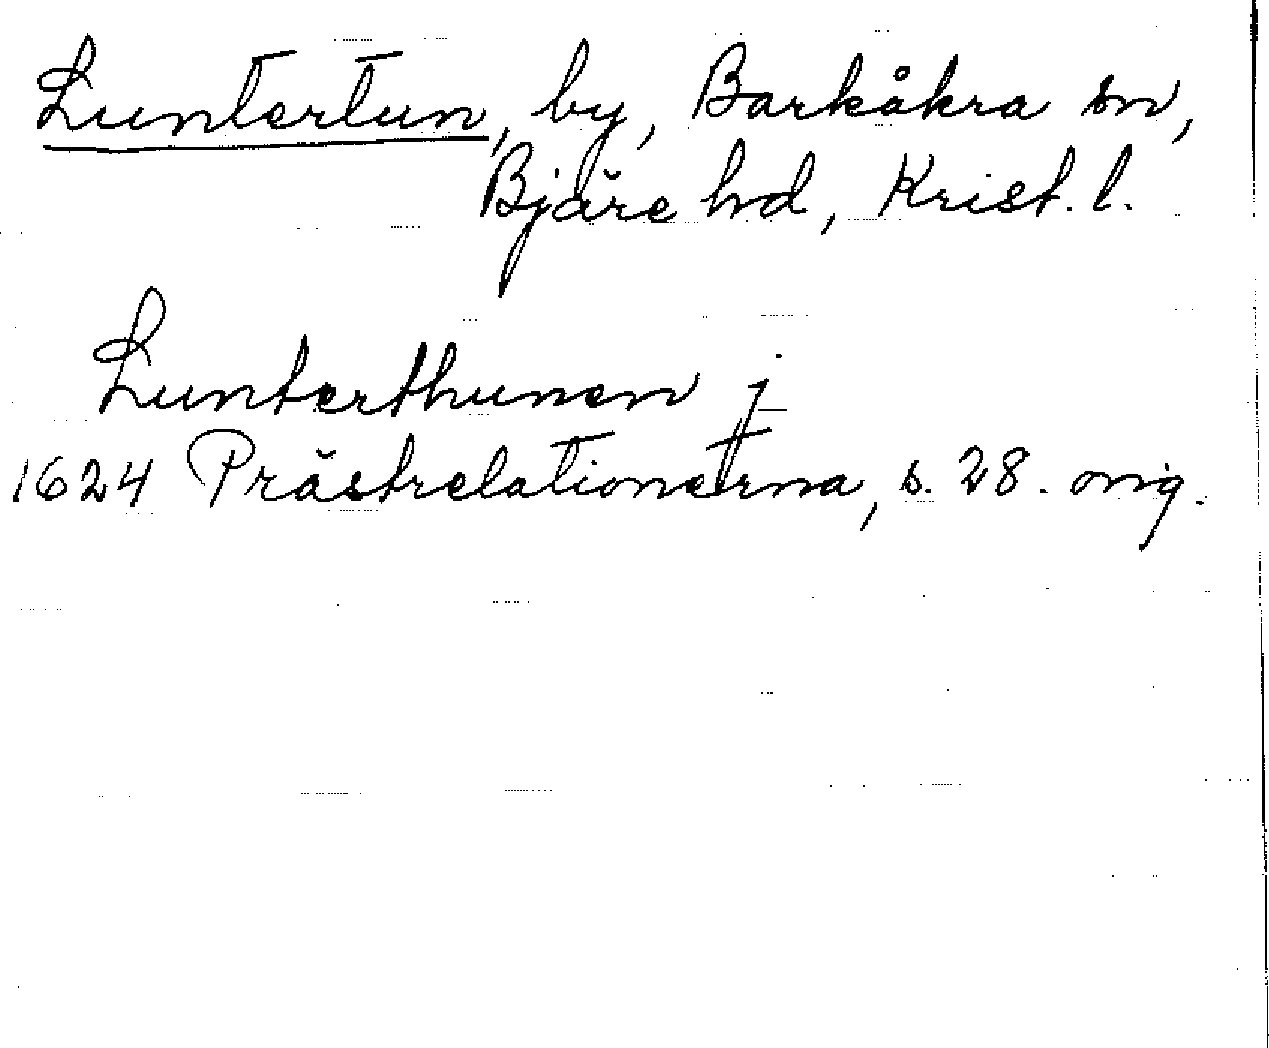 Luntertun, by, Barkåkra sn,
Bjäre hd, Krist. l.
Lunterthunen j
1624 Prästrelationerna, s. 28. orig.